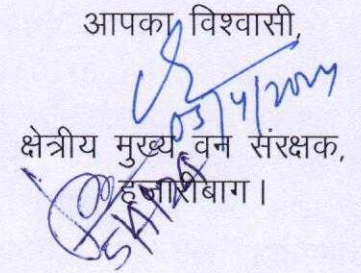 आपका विश्वासी,
03/4/2024
क्षेत्रीय मुख्य वन संरक्षक,
हजारीबाग।